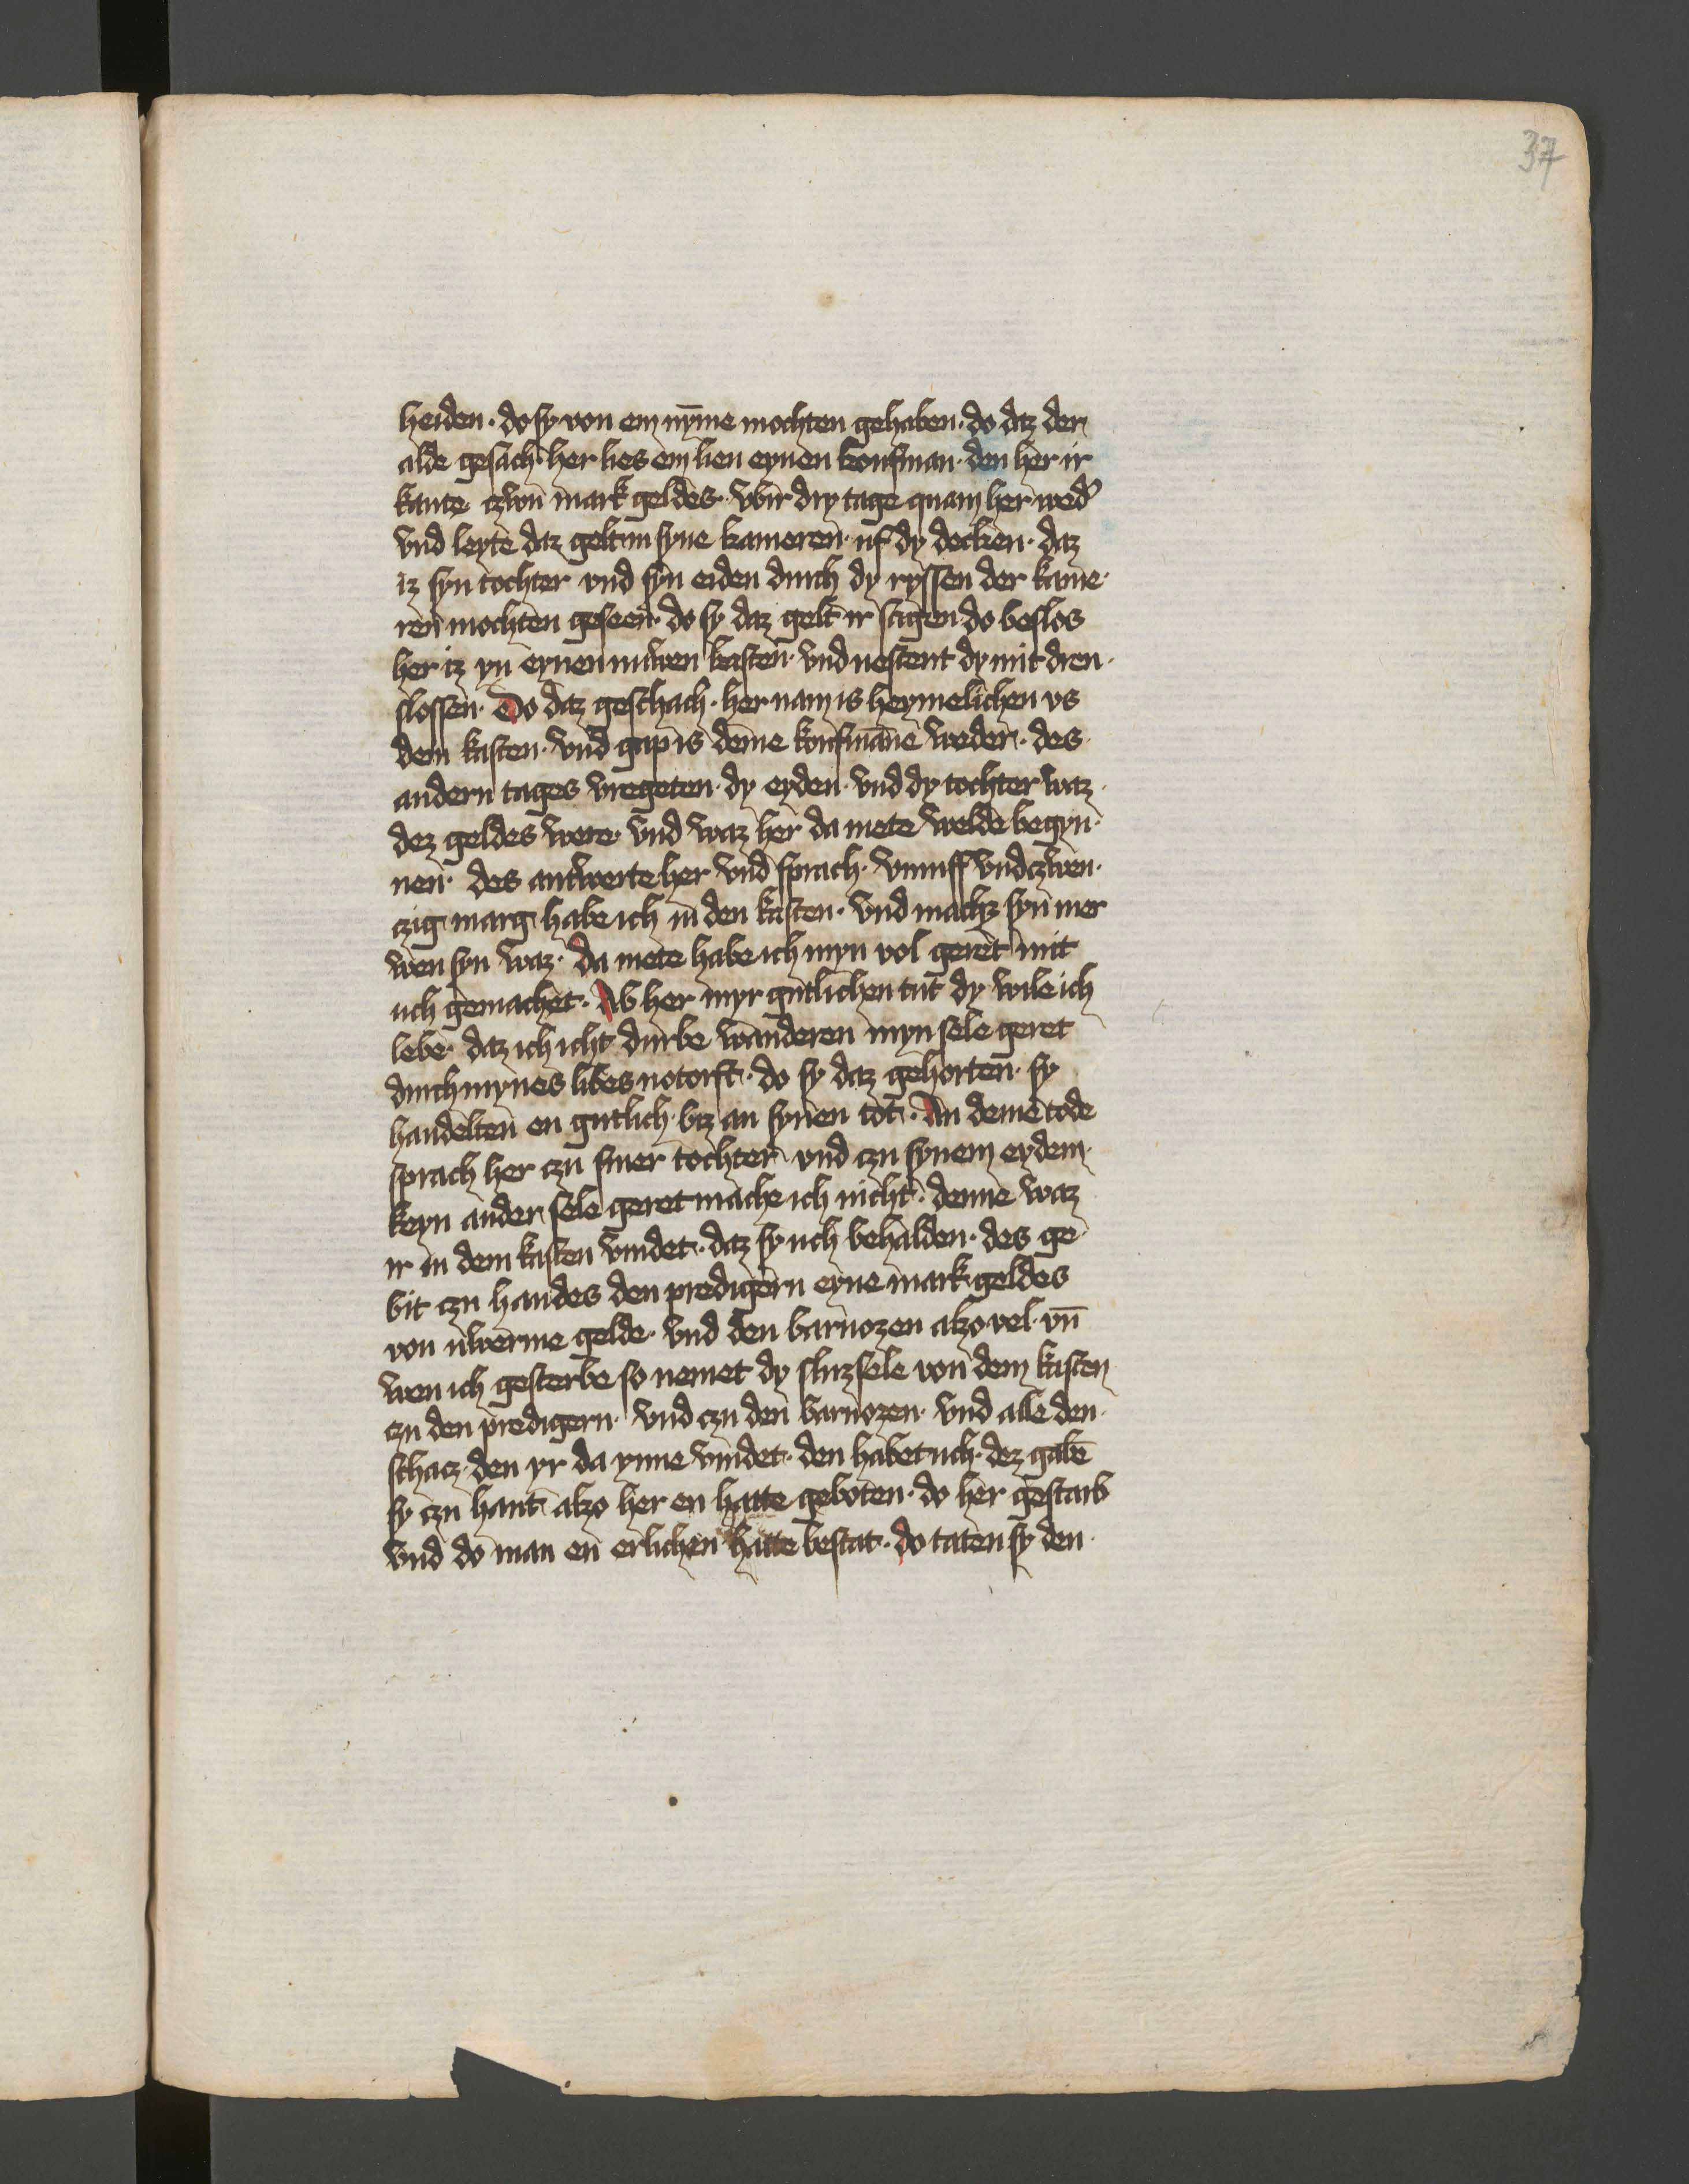 37
heiden · do sy von em nȳme mochten gehaben · do daz der
alde gesach · her lies em lien eynen koufman · den her ir
kante czwu mark geldes · vbir dry tage quam her wed᷑
vnd leyte daz gelt in syne kameren uf dy decken · daz
iz syn tochter vnd syn eiden durch dy ryssen der kame ·
ren mochten geseen · do sy daz gelt ir sagen do beslos
her iz yn eynen nuwen kasten · vnd uestent dy mit dren ·
slossen · Do daz geschach · her nam is heymelichen vs
dem kasten · vnd gap is deme koufmāne weder · des
andern tages vregeten · dy eyden · vnd dy tochter waz ·
dez geldes were · vnd waz her da mete welde begyn ·
nen · des antwerte her vnd sprach · vumff vnd czwen ·
czig marg habe ich in den kasten · vnd machz syn mer
wen syn waz · da mete habe ich myn vol geret mit
uch gemachet · Ab her myr gutlichen tut dy wile ich
lebe · daz ich icht durbe wanderen myn sele geret
durch mynes libes notorft · do sy daz gehorten · sy
handelten en gutlich biz an synen tot · An deme tode
sprach her czu siner tochter vnd czu synem eydem ·
keyn ander sele geret mache ich nicht · denne waz
ir in dem kasten vindet · daz sy uch behalden · des ge
bit czu handes den predigern eyne mark geldes
von uwerme gelde · vnd den baruozen alzo vel · vn̄
wen ich gesterbe so nemet dy sluzsele von dem kasten
czu den predigern · vnd czu den baruozen · vnd alle den ·
schacz · den yr da ynne vindet · den habet uch · dez gabē
sy czu hant alzo her en hatte geboten · do her gestarb
vnd do man en erlichen hatte bestat · do taten sy den ·